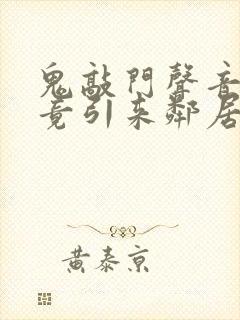 鬼敲門聲音
竟引來鄰居
黃泰京